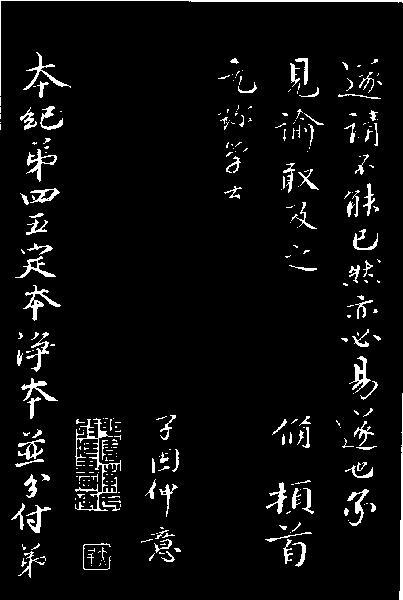 遂請不能已然亦必易遂也承
見諭敢及之 脩 頓首
元珍学士
子固仲意
本紀第四五定本淨本並分付弟